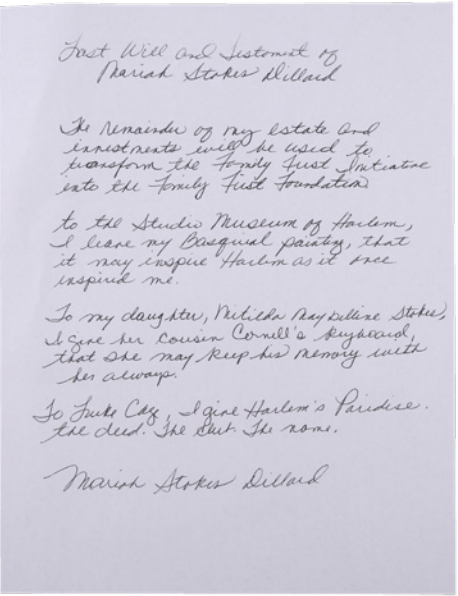 Last Will and Testament of
Mariah Stokes Dillard
The remainder of my estate and
investments will be used to
transform the Family First Initiative
into the Family First Foundation
to the Studio Museum of Harlem,
I leave my Basquiat painting, that
it may inspire Harlem as it once
inspired me.
To my daughter, Matilda Maybelline Stokes,
I give her cousin Cornell's keyboard,
that she may keep his memory with
her always.
To Luke Cage, I give Harlem's Paradise.
the deed. The club. The name.
Mariah Stokes Dillard